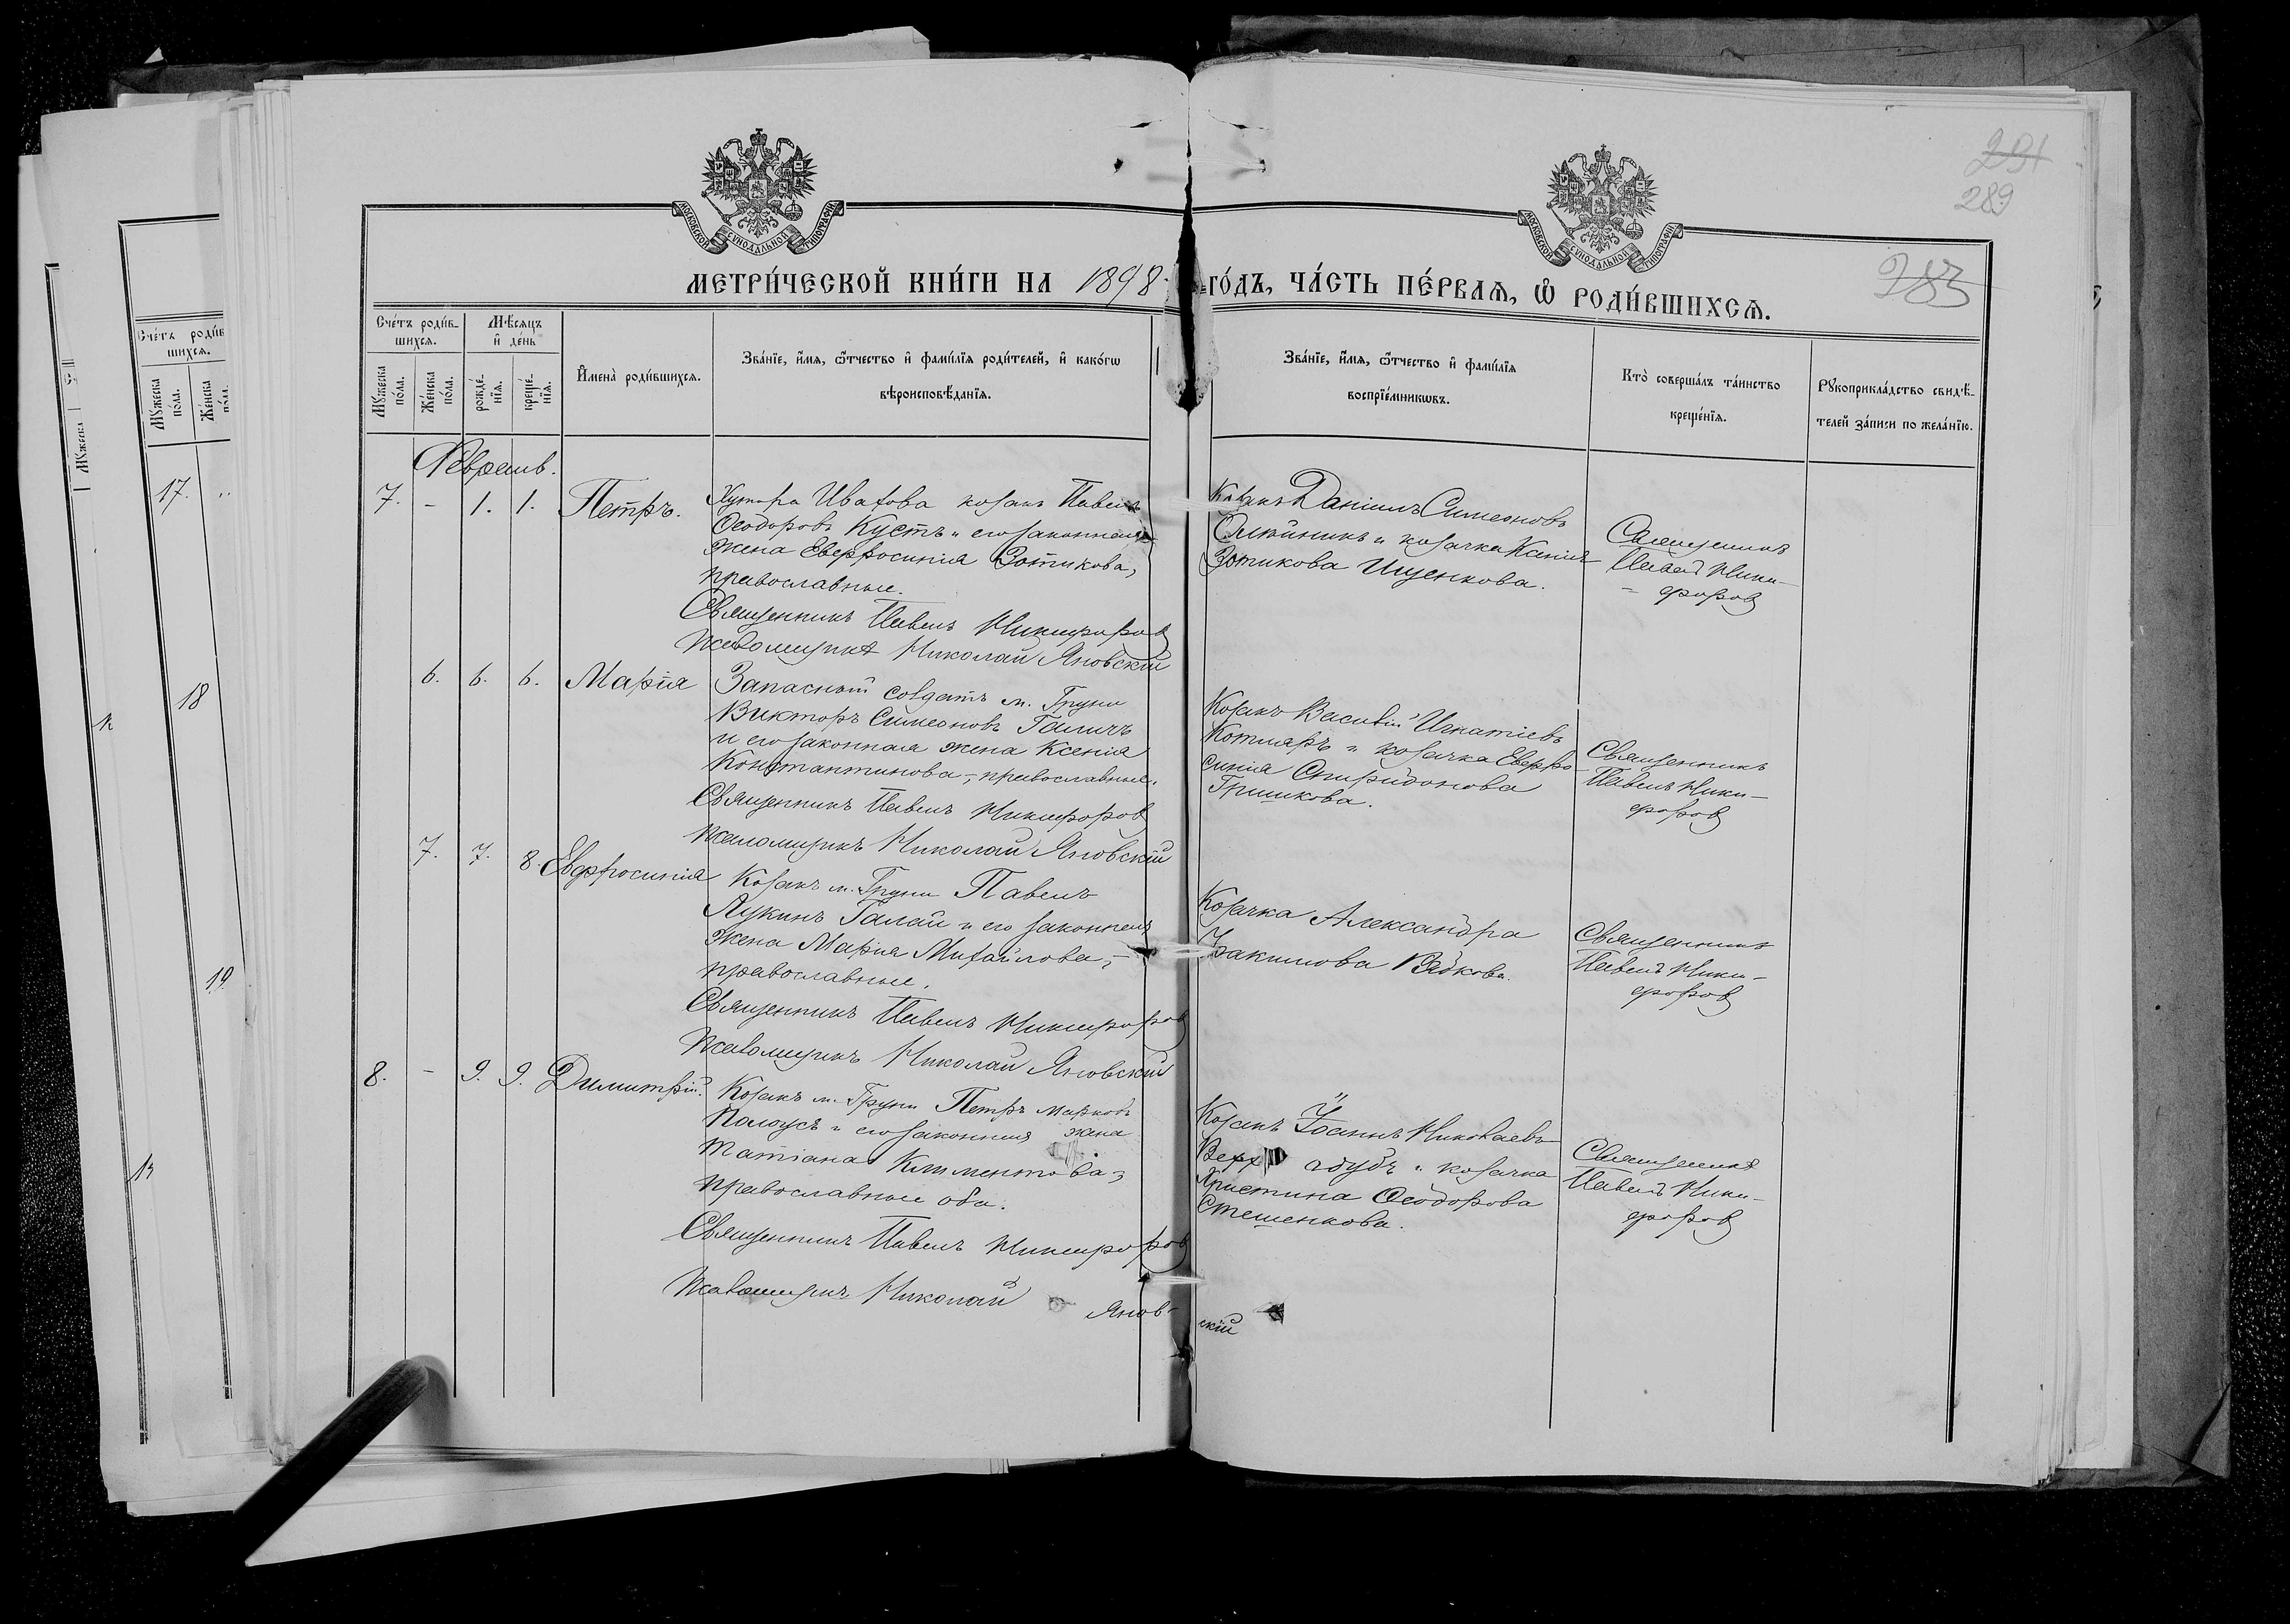 291
289
283
МОСКОВСКОЙ СУНОДАЛЬНОЙ ТИПОГРАФИИ
МОСКОВСКОЙ СУНОДАЛЬНОЙ ТИПОГРАФИИ
МЕТРИ́ЧЕСКОЙ КНИ́ГИ НА 1898 ГО́ДЪ, ЧА́СТЬ ПЕ́РВАѦ, Ѡ҆ РОДИ́ВШИХСѦ.
Сче́тъ роди́вшихсѧ.
Мꙋжеска по́ла.
Же́нска по́ла.
Мѣ́сѧцъ и҆ де́нь
рожде́нїѧ.
креще́нїѧ.
И҆мена̀ роди́вшихсѧ.
Зва́нїе, и҆́мѧ, ѻ҆́тчество и҆ фами́лїѧ роди́телей, и҆ како́гѡ
вѣроисповѣ́данїѧ.
Зва́нїе, и҆́мѧ, ѻ҆́тчество и҆ фами́лїѧ
воспрїе́мникѡвъ.
Кто̀ соверша́лъ та́инство
креще́нїѧ.
Рꙋкоприкла́дство свидѣ́-
телей за́писи по жела́нїю.
Февраль.
7. - 1. 1. Петръ.
Хутора Ивахова козакъ Павелъ
Ѳеодоровъ Кустъ и его законная
жена Евфросинія Зотикова,
православные.
Священникъ Павелъ Никифоров
Псаломщикъ Николай Яновскій
Козакъ Даніилъ Симеоновъ
Олійникъ и козачка Ксенія
Зотикова Ищенкова.
Священникъ
Павелъ Ники-
форов
6. 6. 6. Марія
Запасный солдатъ м. Груни
Викторъ Симеоновъ Галичъ
и его законная жена Ксенія
Константинова, православные.
Священникъ Павелъ Никифоров
Псаломщикъ Николай Яновскій
Козакъ Василій Игнатіевъ
Котляръ и козачка Евфро-
синія Спиридонова
Гришкова.
Священникъ
Павелъ Ники-
форов
7. 7. 8. Евфросинія
Козакъ м. Груни Павелъ
Лукинъ Галай и его законная
жена Марія Михайлова,
православные.
Священникъ Павелъ Никифоров
Псаломщикъ Николай Яновскій
Козачка Александра
Іоакимова Рядкова.
Священникъ
Павелъ Ники-
форов
8. - 9. 9. Димитрій.
Козакъ м. Груни Петръ Марковъ
Полоусъ и его законная жена
Татіана Климентова,
православные оба.
Священникъ Павелъ Никифоров
Псаломщикъ Николай Янов-
скій
Козакъ Іоаннъ Николаевъ
дубъ и козачка
Христина Ѳеодорова
Стешенкова.
Священникъ
Павелъ Ники-
форов
Сче́тъ роди́в
шихсѧ.
Мꙋжеска по́ла.
Же́нска по́ла.
17.
18
19.
Мꙋжеска